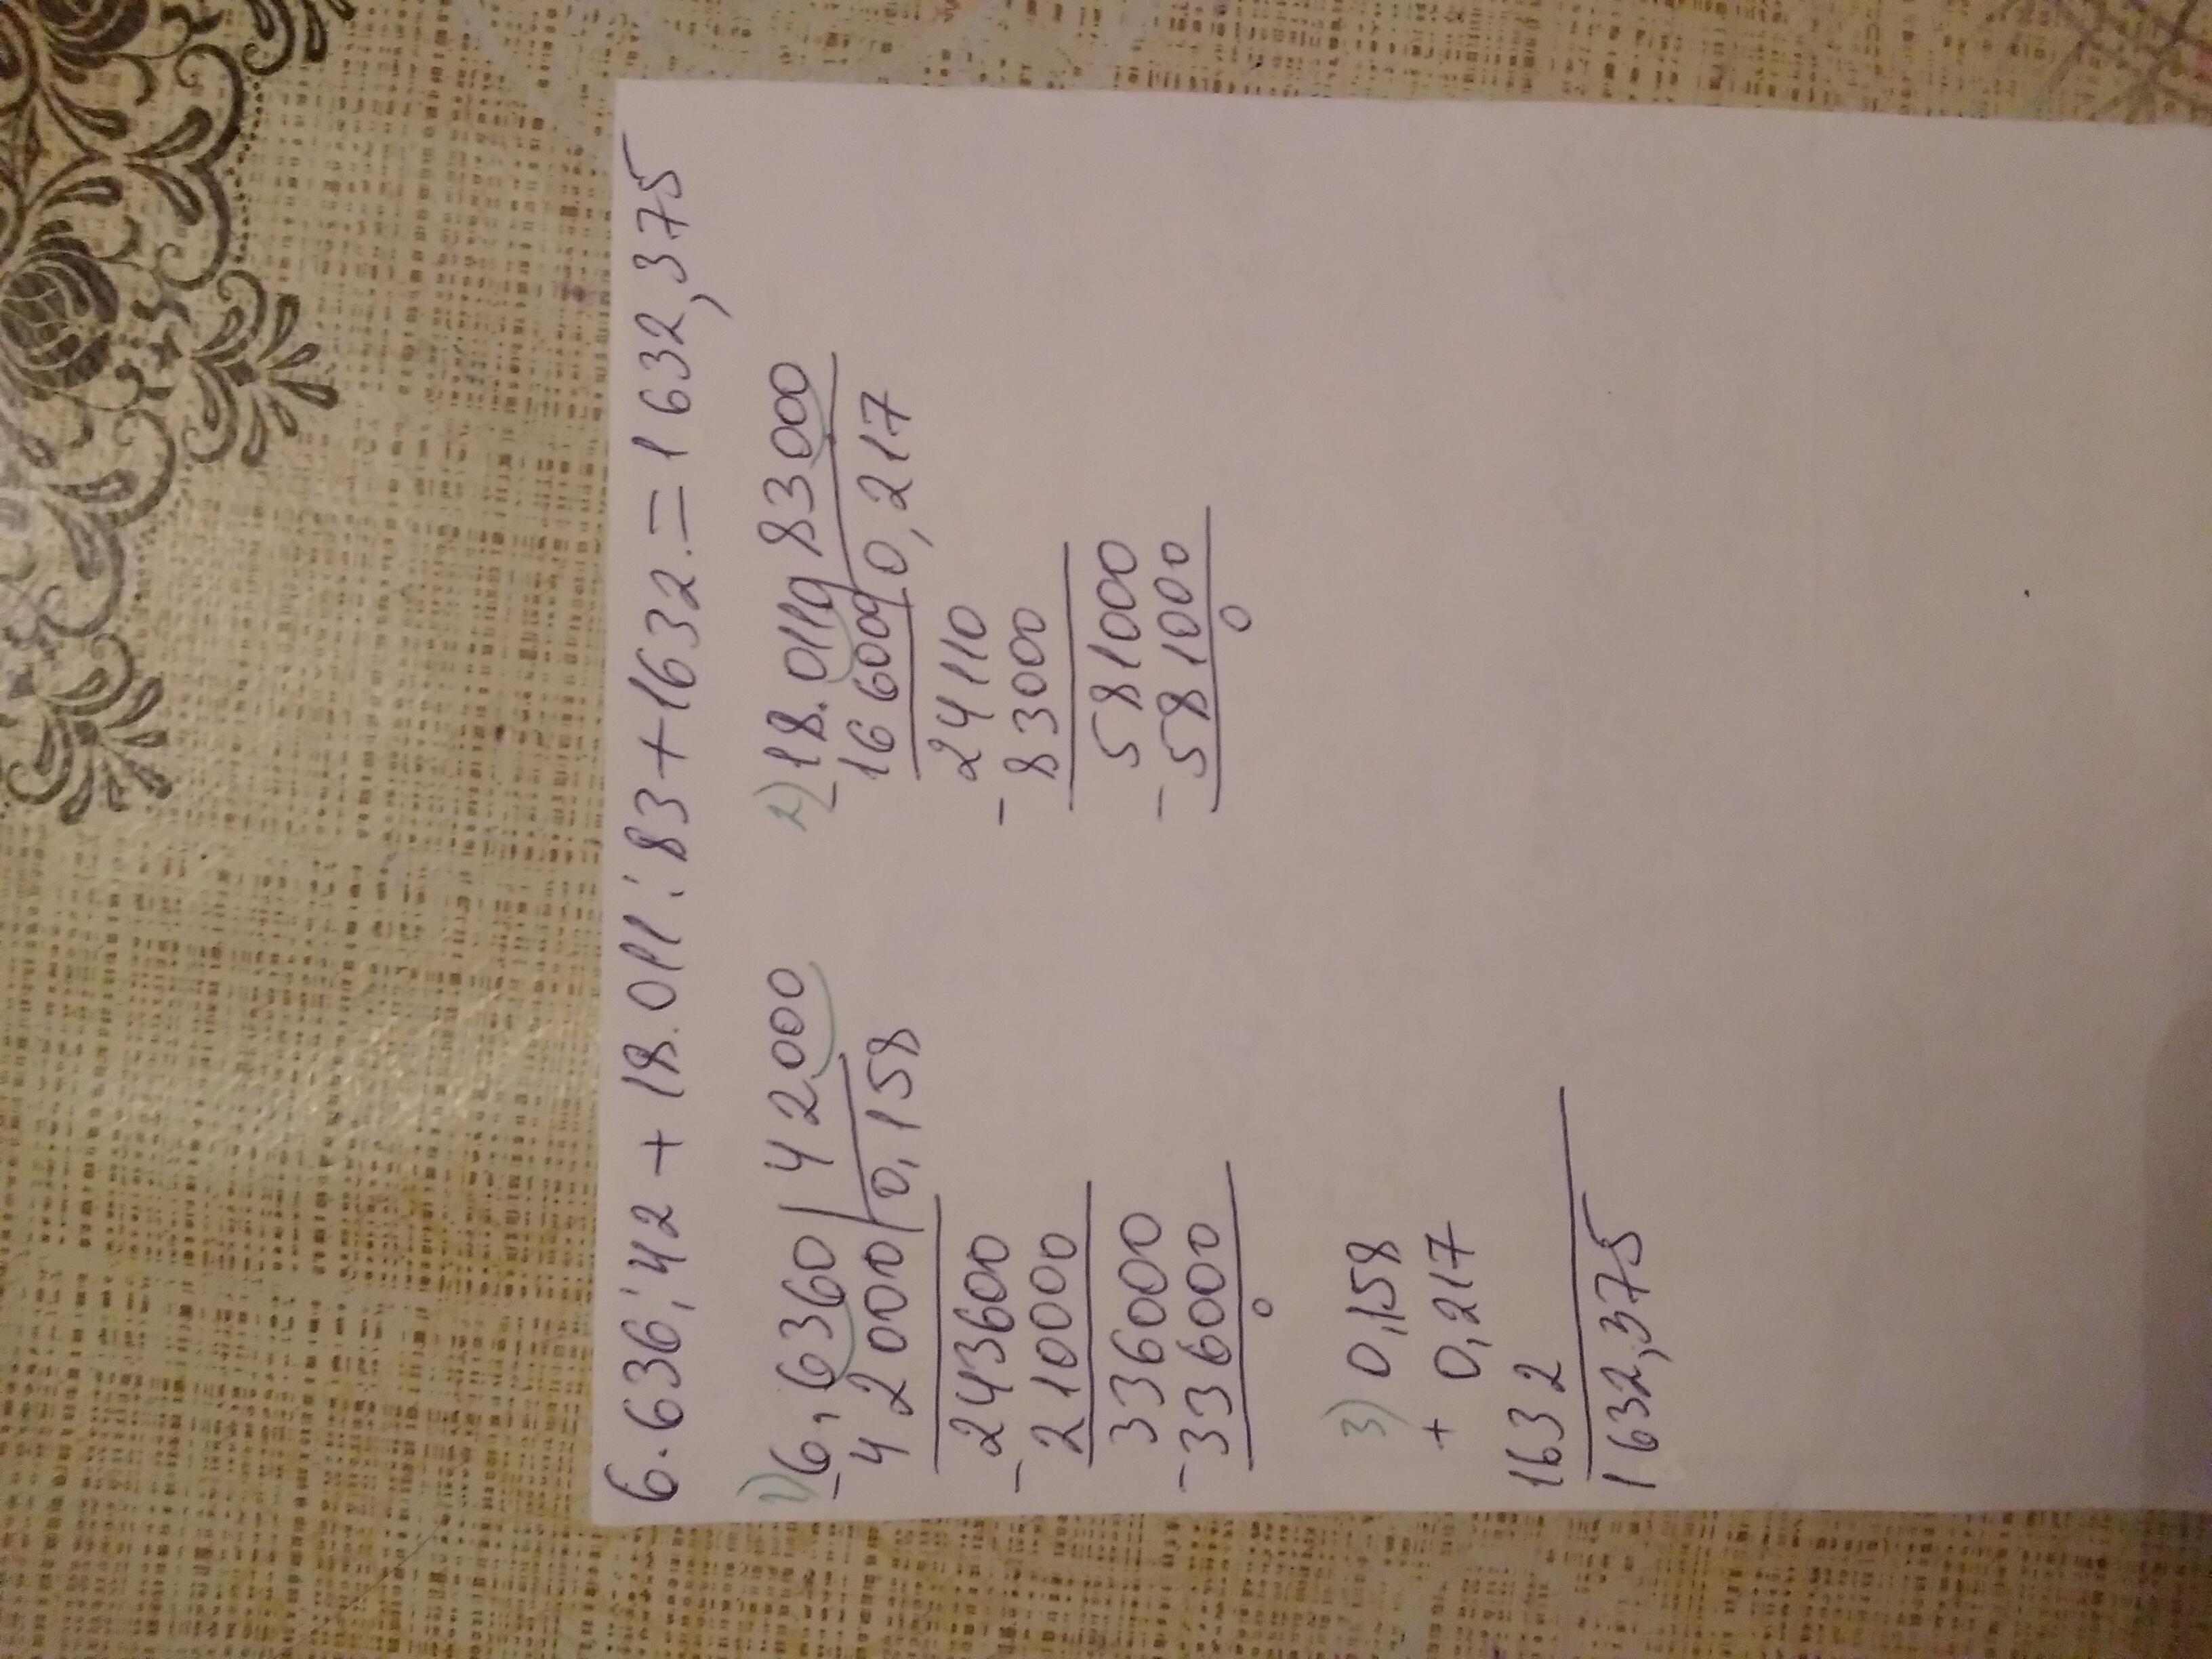 6.636:42+18.011:83+1632.=1632,375
1) -6,6360 42000
42000 0,158
-243600
210000
336000
-336000
0
2) -18.0110 83000
166000 0,217
24110
-83000
581000
-581000
0
3) 0,158
+ 0,217
1632
1632,375